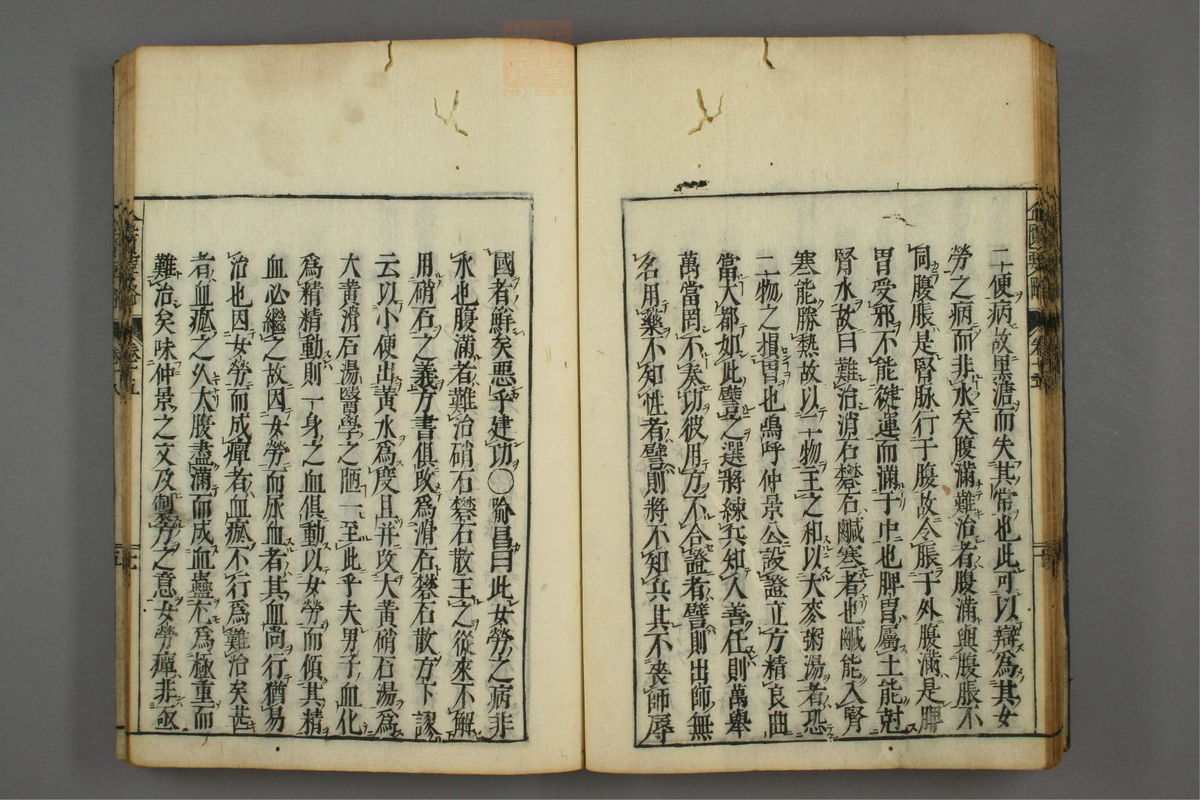 二便病故黒溏而失其常也此可以辯為其女
勞之病而非水矣腹滿難治者腹滿與腹脹不
同腹脹是腎脉行于腹故令脹于外腹滿是脾
胃受邪不能健運而滿于中也脾胃屬土能尅
腎水故曰難治消石礬石鹹寒者也鹹能入腎
寒能勝熱故以二物主之和以大麥粥湯者恐
二物之損胃也嗚呼仲景公設證立方精良曲
當大都如此譬之選將練兵知人善任則萬舉
萬當罔不奏功彼用方不合證者譬則出師無
名用藥不知性者譬則將不知兵其不喪師辱
國者鮮矣惡乎建功○喻昌曰此女勞之病非
水也腹滿者難治硝石礬石散主之從來不解
用硝石之義方書俱改為滑石礬石散方下謬
云以小便出黃水為度且并改大黃硝石湯為
大黃滑石湯醫學之陋一至此乎夫男子血化
為精精動則一身之血俱動以女勞而傾其精
血必繼之故因女勞而尿血者其血尚行猶易
治也因女勞而成癉者血瘀不行為難治矣甚
者血瘀之久大腹盡滿而成血蠱尤為極重而
難治矣味仲景之文及制方之意女勞癉非亟